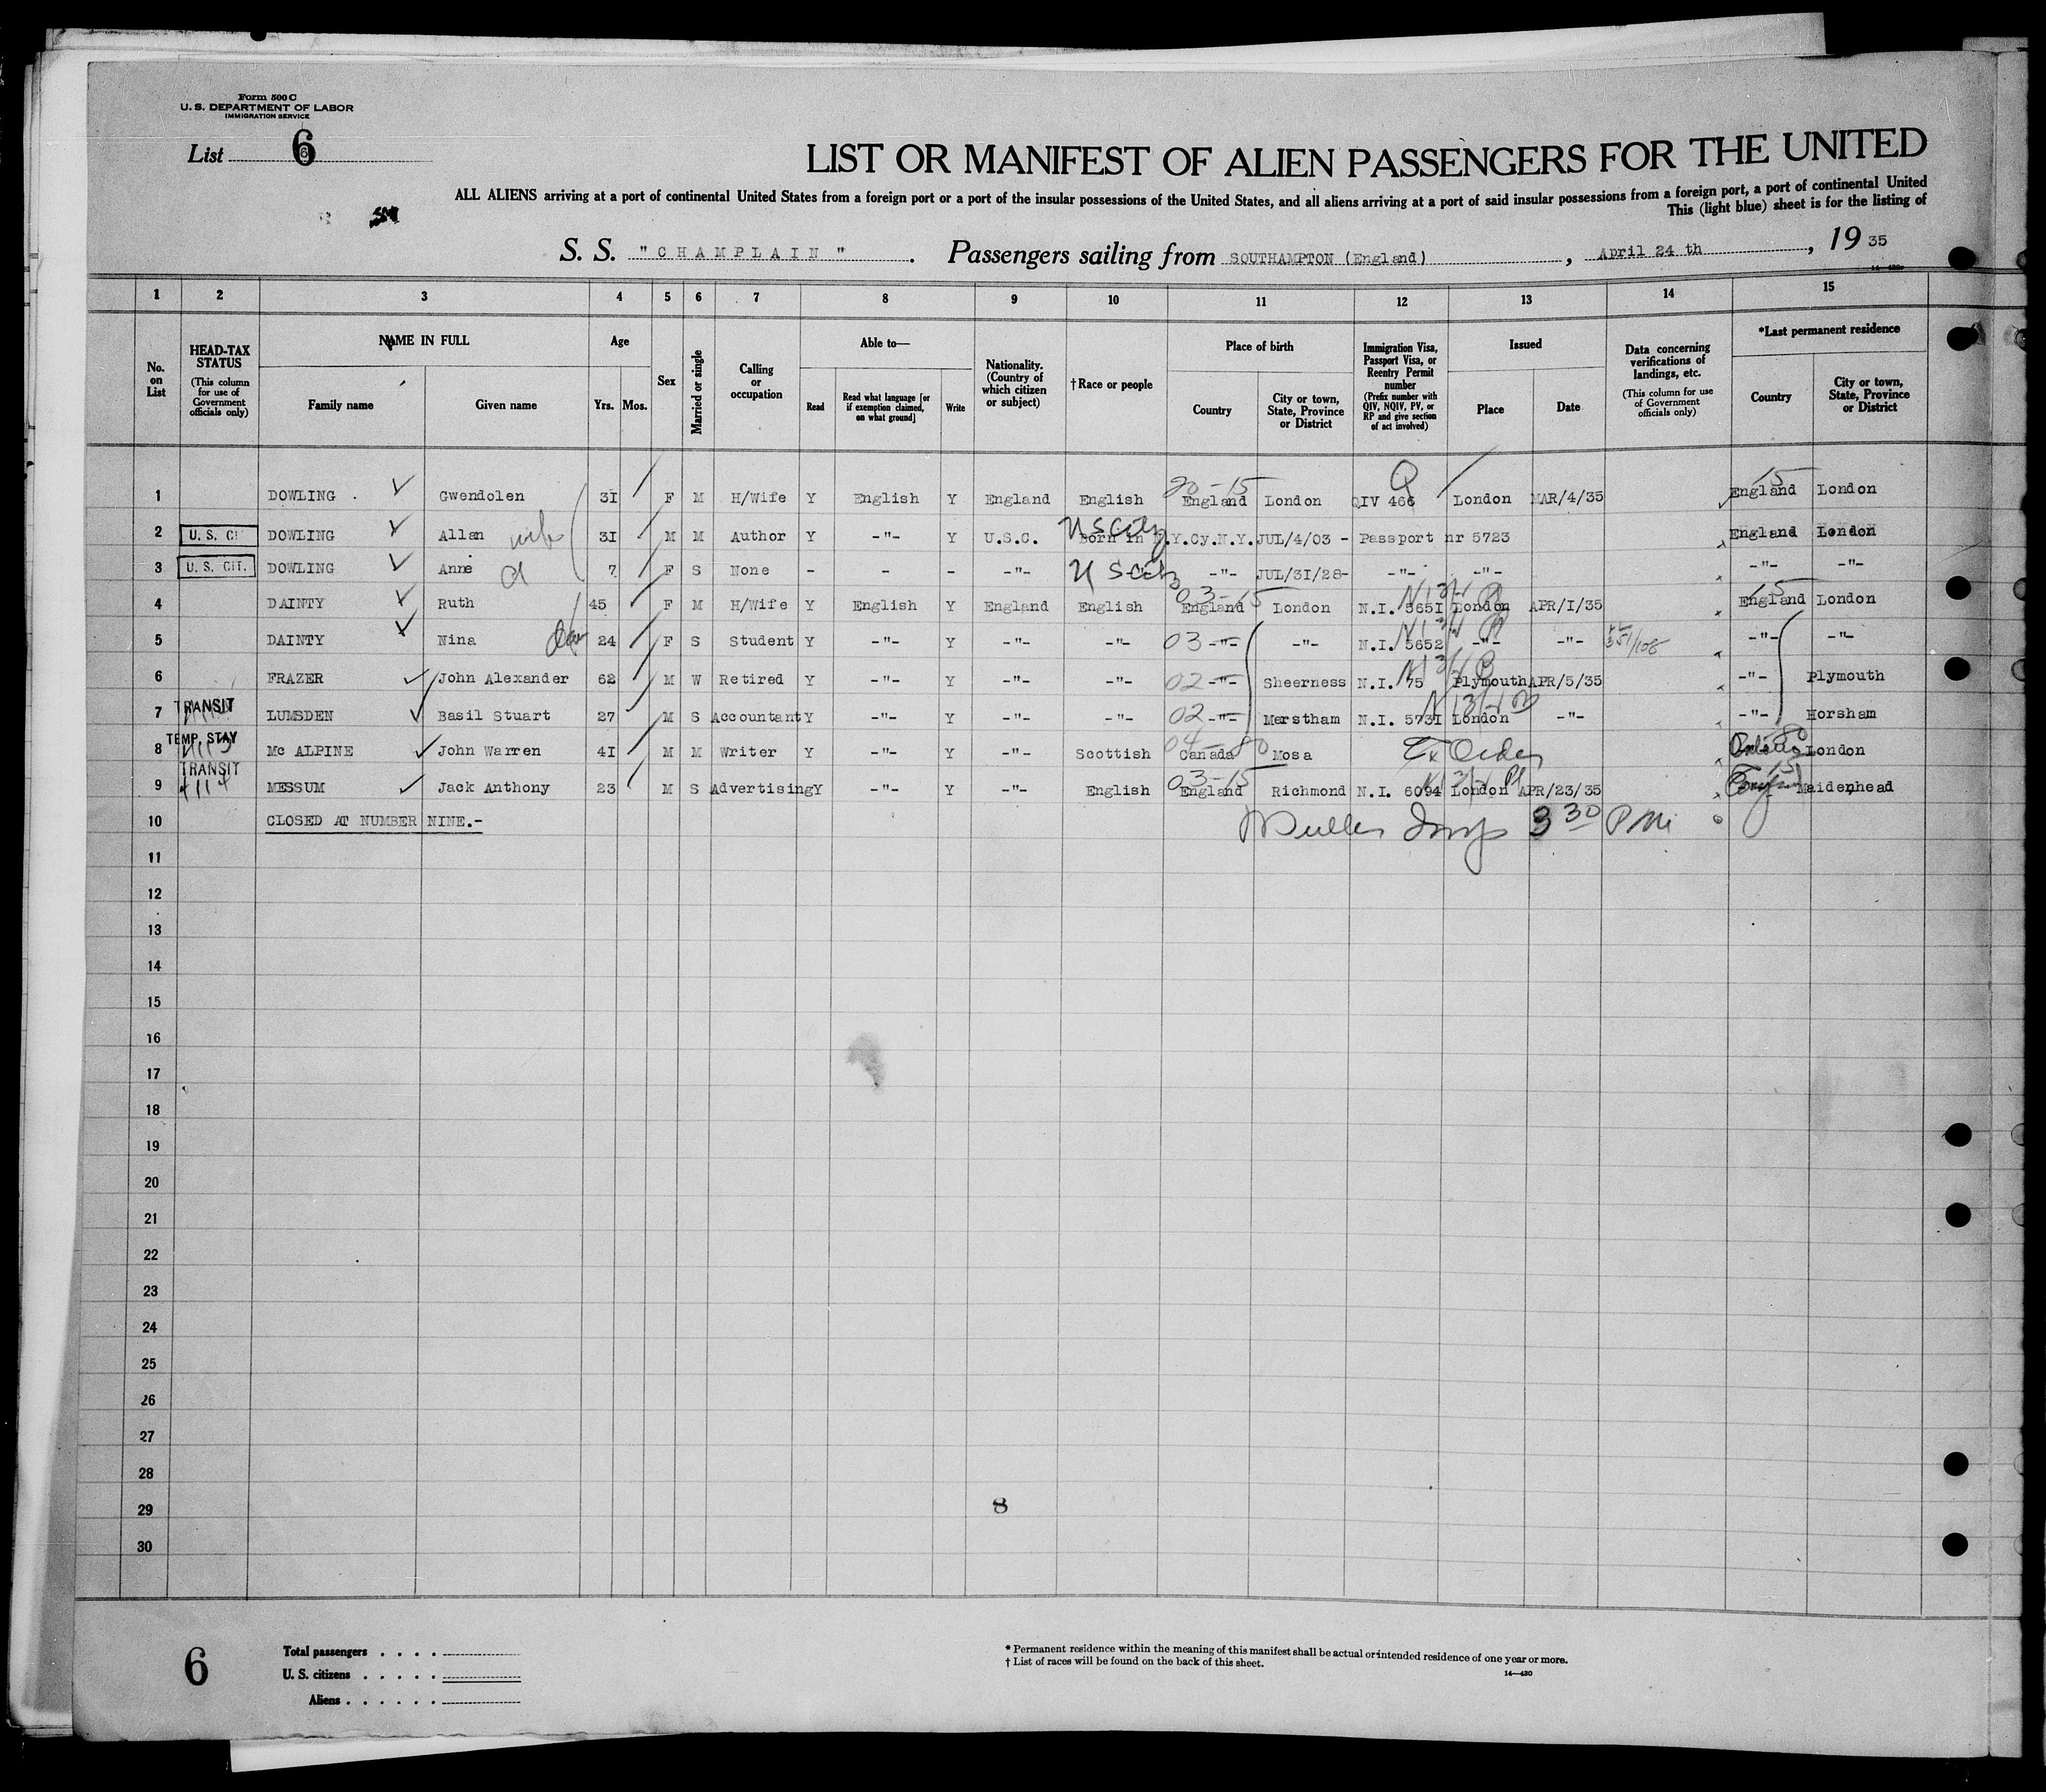 Form 500 C
U. S. DEPARTMENT OF LABOR
IMMIGRATION SERVICE
List 6
LIST OR MANIFEST OF ALIEN PASSENGERS FOR THE UNITED
ALL ALIENS arriving at a port of continental United States from a foreign port or a port of the insular possessions of the United States, and all aliens arriving at a port of said insular possessions from a foreign port, a port of continental United
This (light blue) sheet is for the listing of
S. S. "CHAMPLAIN". Passengers sailing from SOUTHAMPTON (England), April 24 th, 19 35
1 2 3 4 5 6 7 8 9 10 11 12 13 14 15
No. on List
HEAD-TAX STATUS (This column for use of Government officials only)
NAME IN FULL
Family name Given name
Age
Yrs. Mos.
Sex
Married or single
Calling or occupation
Able to—
Read Read what language [or if exemption claimed, on what ground] Write
Nationality. (Country of which citizen or subject)
† Race or people
Place of birth
Country City or town, State, Province or District
Immigration Visa, Passport Visa, or Reentry Permit number (Prefix number with QIV, NQIV, PV, or RP and give section of act involved)
Issued
Place Date
Data concerning verifications of landings, etc. (This column for use of Government officials only)
*Last permanent residence
Country City or town, State, Province or District
1 DOWLING Gwendolen 31 F M H/Wife Y English Y England English 20-15 England London Q QIV 466 London MAR/4/35 15 England London
2 U. S. CIT. DOWLING Allan 31 M M Author Y -"- Y U.S.C. U S City Born in N.Y.Cy.N.Y. JUL/4/03 - Passport nr 5723 England London
3 U. S. CIT. DOWLING Anne d 7 F S None - - - -"- U S City -"- JUL/31/28- -"- -"- -"- -"-
4 DAINTY Ruth 45 F M H/Wife Y English Y England English 03-15 England London N.I. 5651 London APR/1/35 15 England London
5 DAINTY Nina dau 24 F S Student Y -"- Y -"- -"- 03 -"- -"- N.I. 5652 -"- -"- -"- -"-
6 FRAZER John Alexander 62 M W Retired Y -"- Y -"- -"- 02 -"- Sheerness N.I. 75 Plymouth APR/5/35 -"- Plymouth
7 TRANSIT LUMSDEN Basil Stuart 27 M S Accountant Y -"- Y -"- -"- 02 -"- Merstham N.I. 5731 London -"- -"- Horsham
8 TEMP. STAY Mc ALPINE John Warren 41 M M Writer Y -"- Y -"- Scottish 04-80 Canada Mosa Ex Order 80 London
9 TRANSIT MESSUM Jack Anthony 23 M S Advertising Y -"- Y -"- English 03-15 England Richmond N.I. 6094 London APR/23/35 15 Maidenhead
10 CLOSED AT NUMBER NINE.- Insp 3 30 PM
11
12
13
14
15
16
17
18
19
20
21
22
23
24
25
26
27
28
29 8
30
6
Total passengers
U. S. citizens
Aliens
* Permanent residence within the meaning of this manifest shall be actual or intended residence of one year or more.
† List of races will be found on the back of this sheet.
14—430